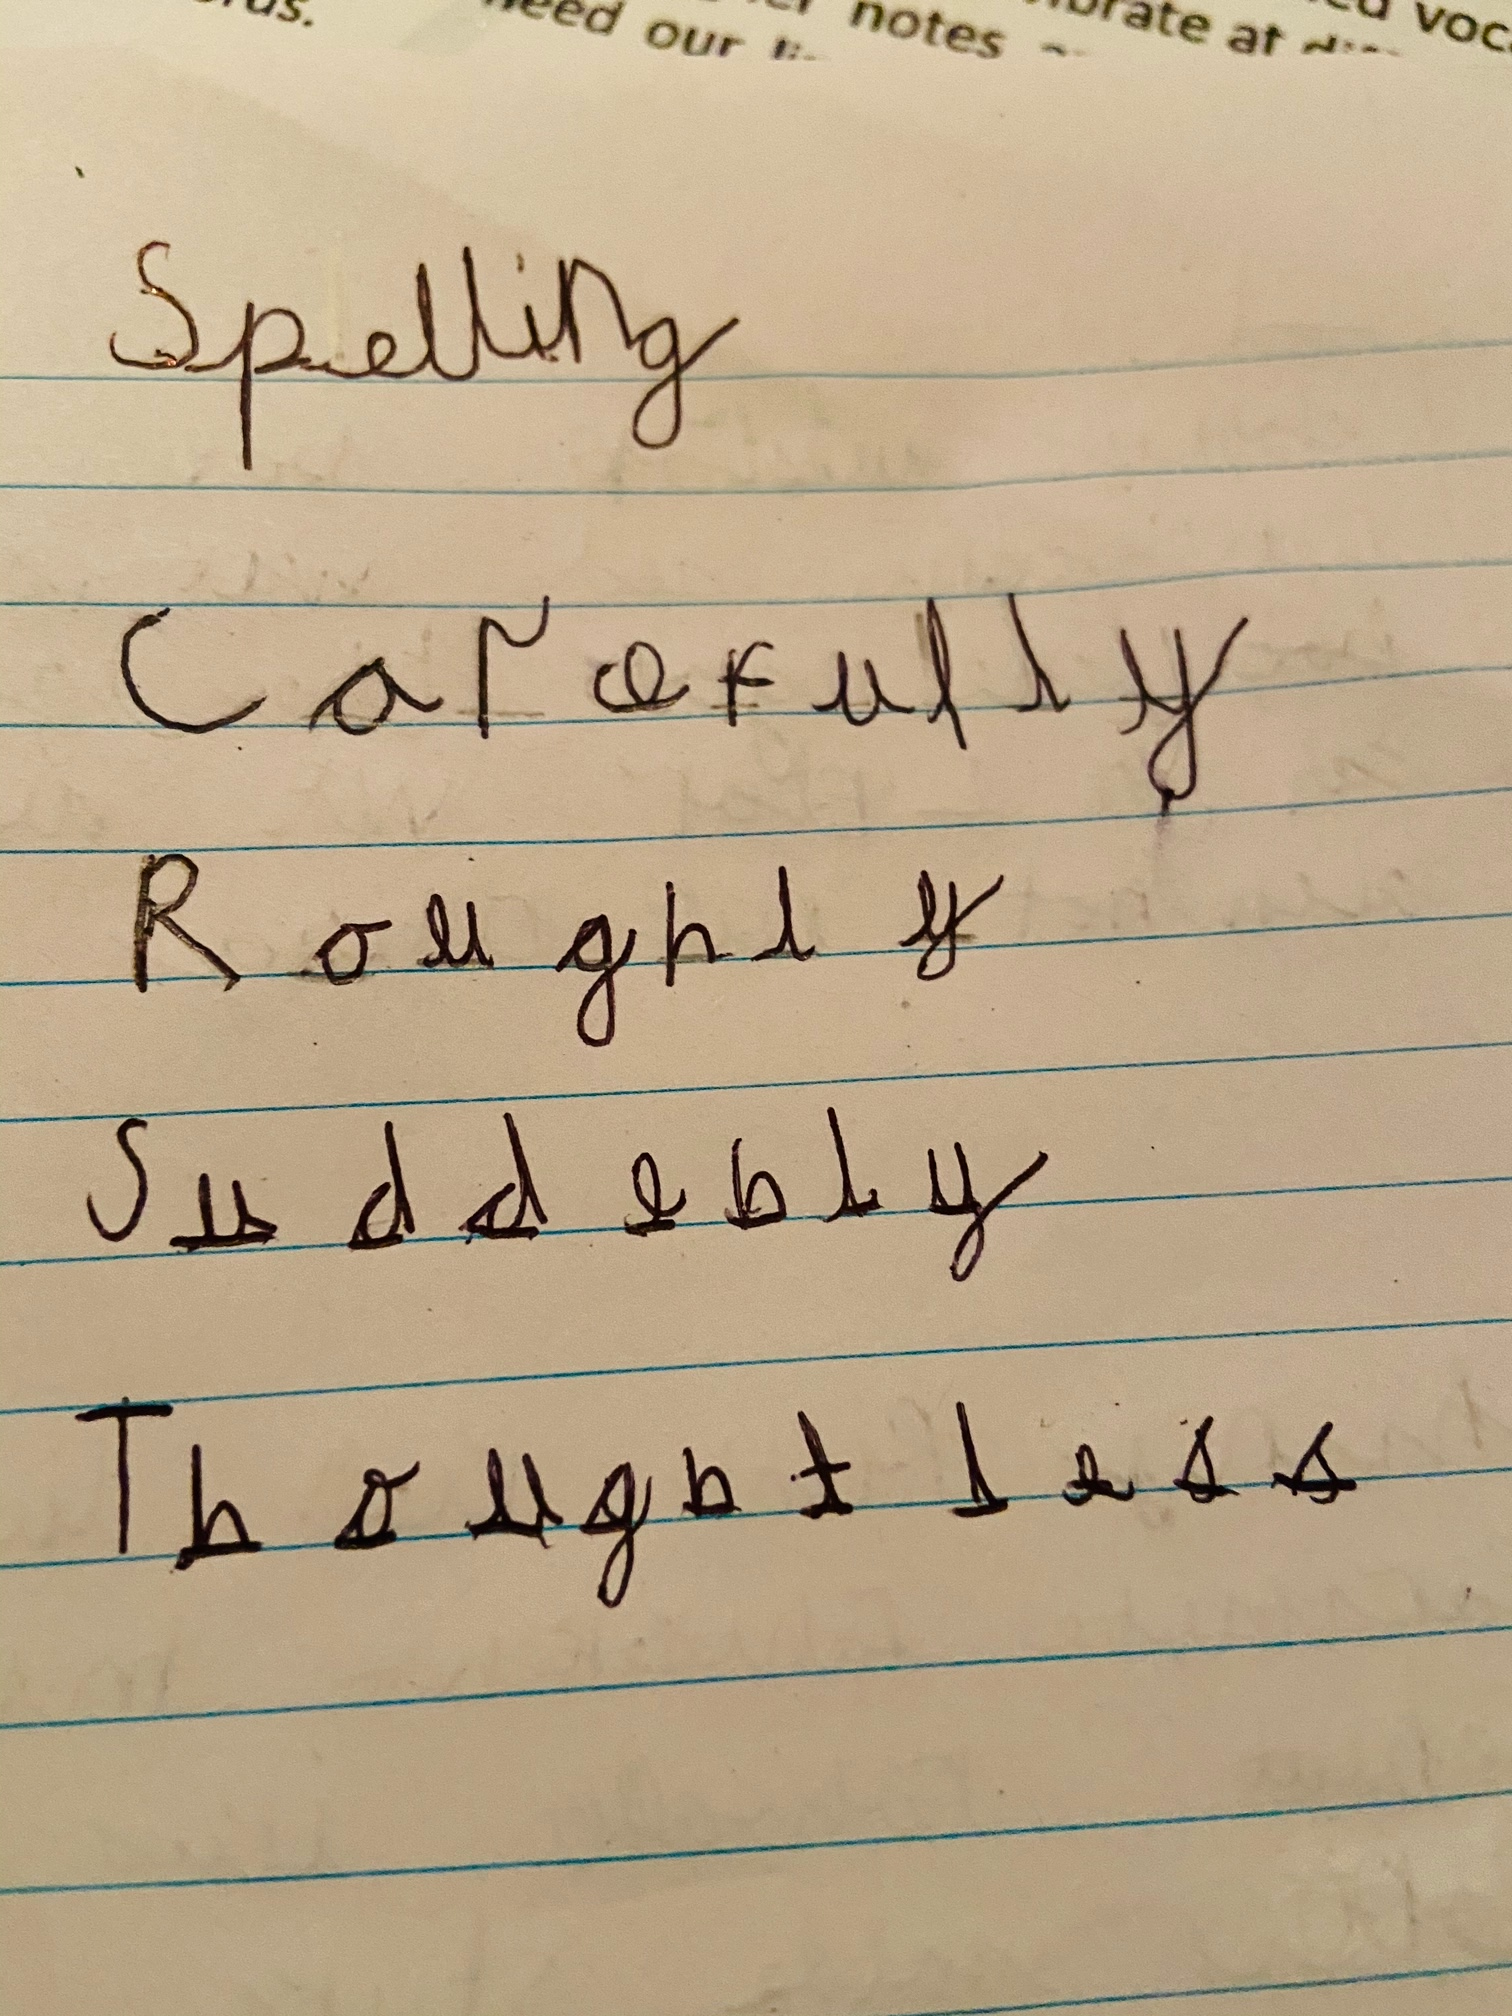 need our notes at voc
Spelling
Carefully
Roughly
Suddebly
Thoughtless